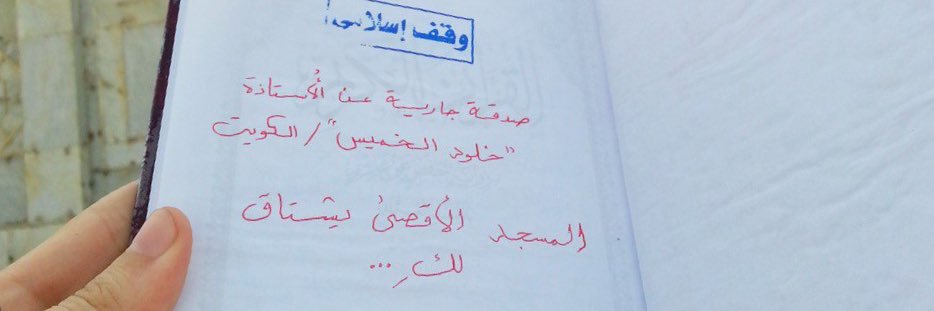 وقف إسلامي
صدقة جارية عن الأستاذة
"خلود الخميس" / الكويت
المسجد الأقصى يشتاق
لكِ ...